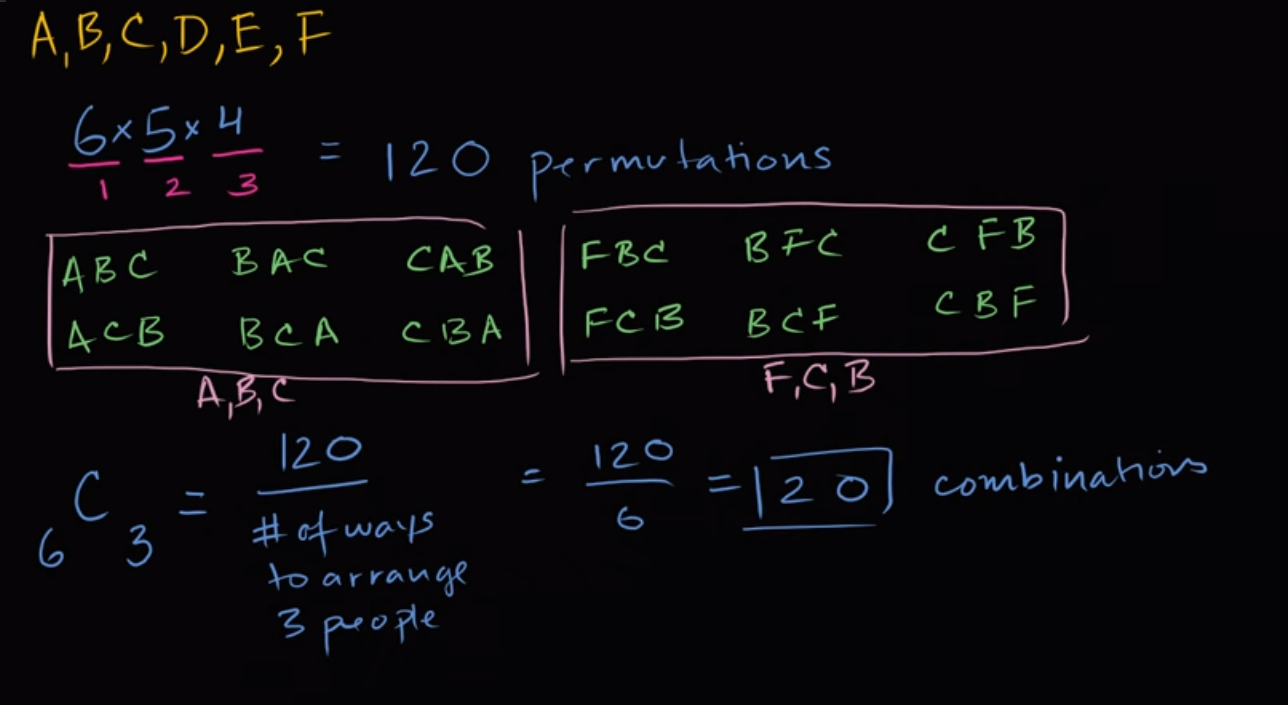 A, B, C, D, E, F
6 × 5 × 4 = 120 permutations
1 2 3
ABC BAC CAB FBC BFC CFB
ACB BCA CBA FCB BCF CBF
A, B, C F, C, B
6C3 = 120 / # of ways to arrange 3 people = 120 / 6 = 20 combinations